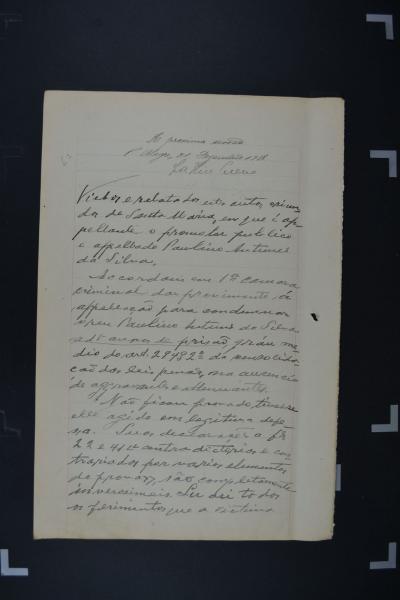 Á proxima sessão
P. Alegre, 21 Dezembro 1918
Vistos e relatados estes autos, oriun-
dos de Santa Maria, em que é ap-
pellante o promotor publico
e appellado Paulino Antunes
da Silva,
Accordam em 1ª camara
criminal dar provimento á
appellação para condemnar
o réu Paulino Antunes da Silva
annos de prisão, grau me-
dio do art. 294 § 2º da
cação das leis penaes, na ausencia
de aggravantes e attenuantes.
Não ficou provado tivesse
elle agido em legitima defe-
sa. Suas declarações a fls
22 e 41 contradictorias e con-
trariadas por varios elementos
de prova, são completamente
inverosimeis. Ser
os ferimentos que a victima